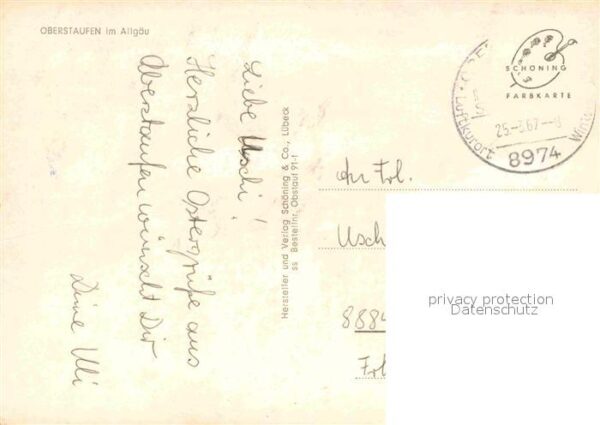 OBERSTAUFEN im Allgäu
Liebe Uschi!
Herzliche Ostergrüße aus
Oberstaufen wünscht Dir
Deine Uli
Hersteller und Verlag Schöning & Co., Lübeck
ss Bestellnr. Obstauf 91-1
SCHÖNING
FARBKARTE
Luftkurort
25.-3.67.--8
8974
An Frl.
Usch
8884
Frl
privacy protection
Datenschutz